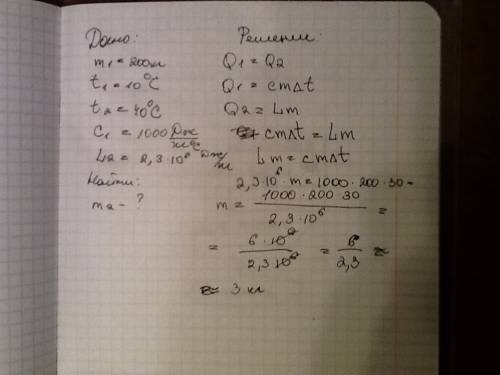 Дано:
m1 = 200кг
t1 = 10°C
t2 = 40°C
C1 = 1000 Дж/кг°C
L2 = 2,3·10⁶ Дж/кг
Найти:
m2 - ?
Решение:
Q1 = Q2
Q1 = cm∆t
Q2 = Lm
cm∆t = Lm
Lm = cm∆t
2,3·10⁶·m = 1000·200·30
m = 1000·200·30 / 2,3·10⁶ =
= 6·10⁶ / 2,3·10⁶ = 6 / 2,3 ≈
≈ 3 кг